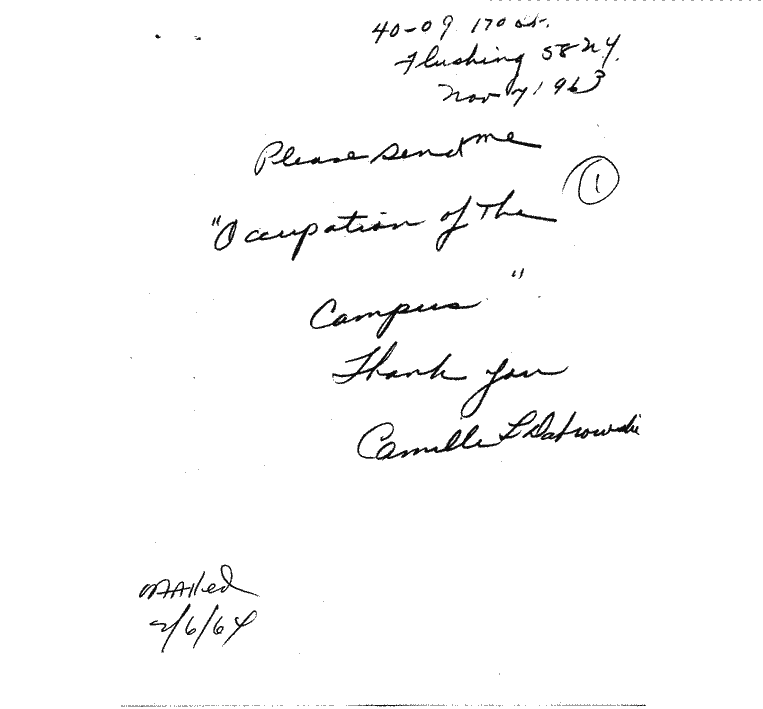 40-09 170 St.
Flushing 58 NY.
Nov 7, 1963
Please send me
①
"Occupation of the
Campus"
Thank you
Camille L Dabrowski
Mailed
2/6/64